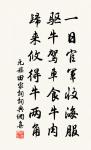 一日官軍收海服
驅牛駕車食牛肉
歸來攸得牛兩角
元稹田家詞詞典網